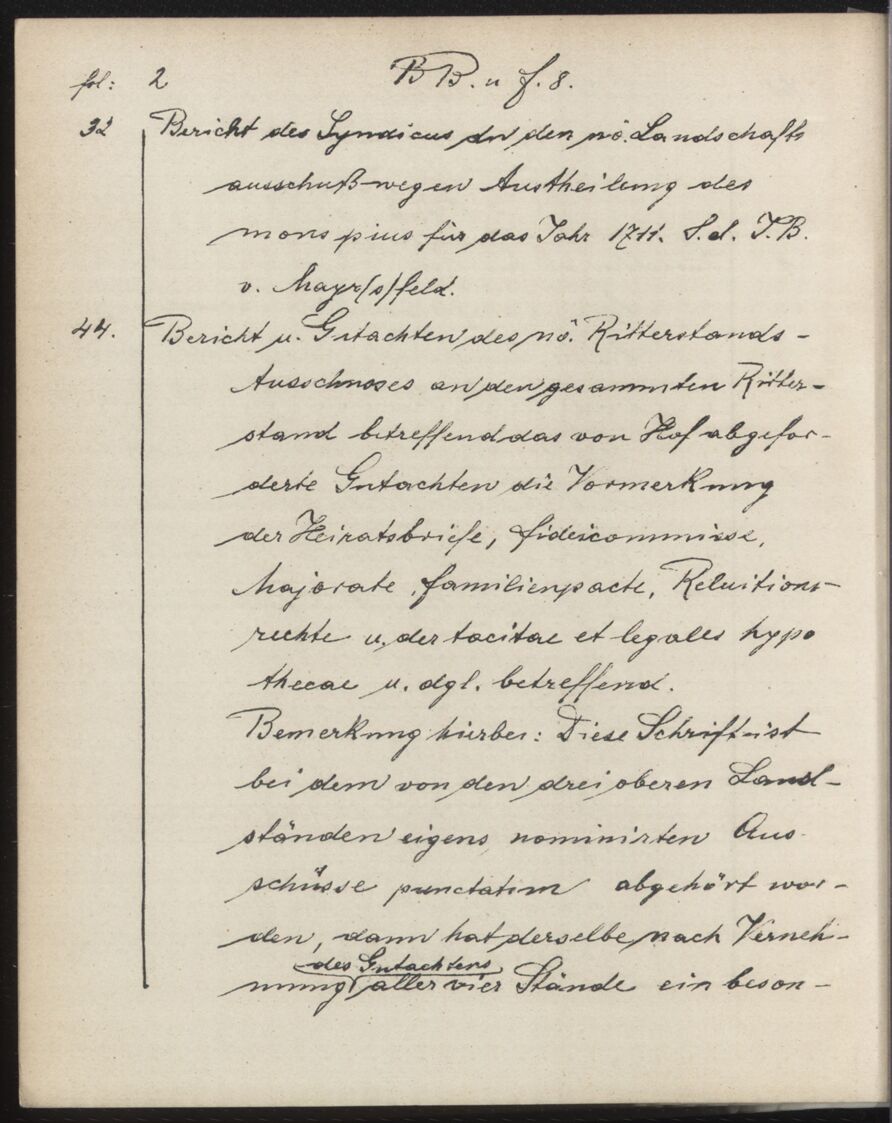 fol: 2 BB. u f. 8.
32 Bericht des Syndicus an den nö. Landschafts
ausschuß wegen Austheilung des
mons pius für das Jahr 1711. S. d. J. B.
v. Mayr(s)feld.
44. Bericht u. Gutachten des nö. Ritterstands-
Ausschusses an den gesammten Ritter-
stand betreffend das von Hof abgefor-
derte Gutachten die Vormerkung
der Heiratsbriefe, fideicommisse,
Majorate, familienpacte, Reluitions-
rechte u. der tacitae et legales hypo
thecae u. dgl. betreffend.
Bemerkung hierbei: Diese Schrift ist
bei dem von den drei oberen Land-
ständen eigens nominirten Aus-
schüsse punctatim abgehört wor-
den, dann hat derselbe nach Verneh-
des Gutachtens
mung aller vier Stände ein beson-